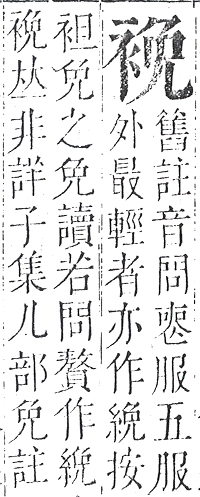 舊註音問喪服五服
外最輕者亦作絻按
袒免之免讀若問贅作絻
𠀤非詳子集儿部免註